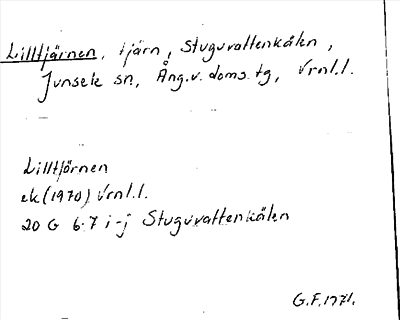 Lilltjärnen, tjärn, Stuguvattenkälen,
Junsele sn, Ång.v. doms. tg, Vrnl.l.
Lilltjärnen
ek (1970) Vrnl.l.
20 G 6-7 i-j Stuguvattenkälen
G.F. 1971.